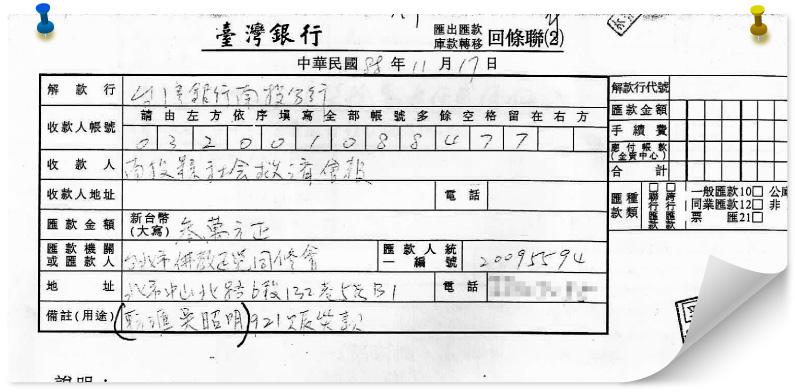 臺灣銀行 匯出匯款 庫款轉移 回條聯(2)
中華民國 88 年 11 月 17 日
解款行 台灣銀行南投分行
解款行代號
請由左方依序填寫全部帳號多餘空格留在右方
收款人帳號 032001088477
匯款金額
手續費
應付帳款 (金資中心)
合計
收款人 南投縣社會救濟會報
收款人地址 電話
匯款種類 □聯行匯款 □跨行匯款 一般匯款10□ 公庫
同業匯款12□ 非
票匯21□
匯款金額 新台幣(大寫) 參萬元正
匯款機關或匯款人 台北市佛教正覺同修會 匯款人統一編號 20095594
地址 北市中山北路6段132巷5號B1 電話
備註(用途) 吳昭明)921災赈災款
說明：